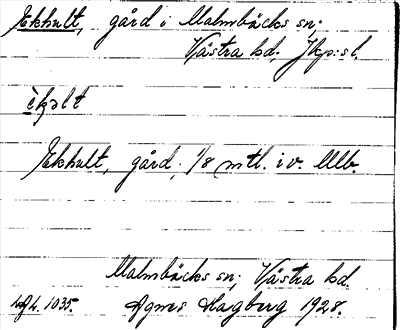 Ekhult, gård i Malmbäcks sn;
Västra hd, Jkp:s l.
èkəlt
Ekhult, gård, 1/8 mtl. i v. Ulb.
Malmbäcks sn; Västra hd.
Agnes Hagberg 1928.